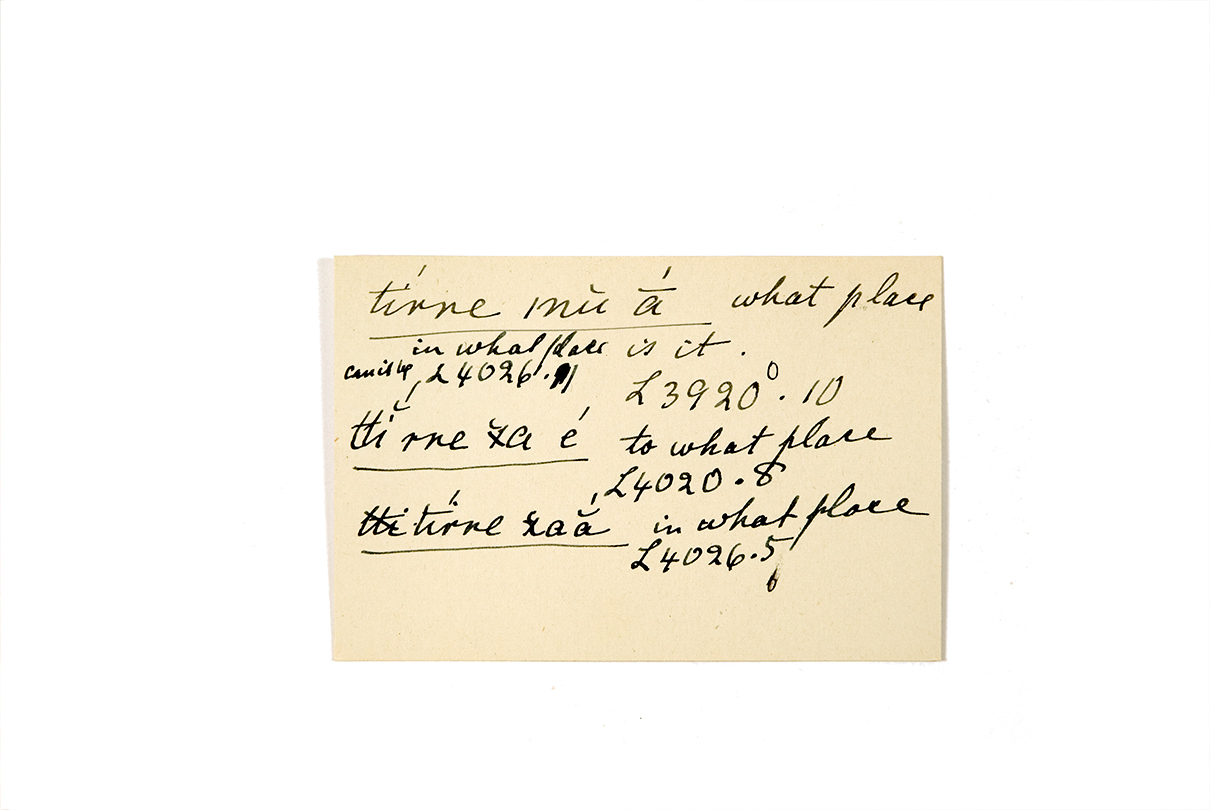 tírre mŭ ā́ what place
in what place is it.
can it be, L4026.11
L3920⁰.10
ttí̆ rre za é to what place
, L4020.8
tírre zaắ in what place
L4026.5
6